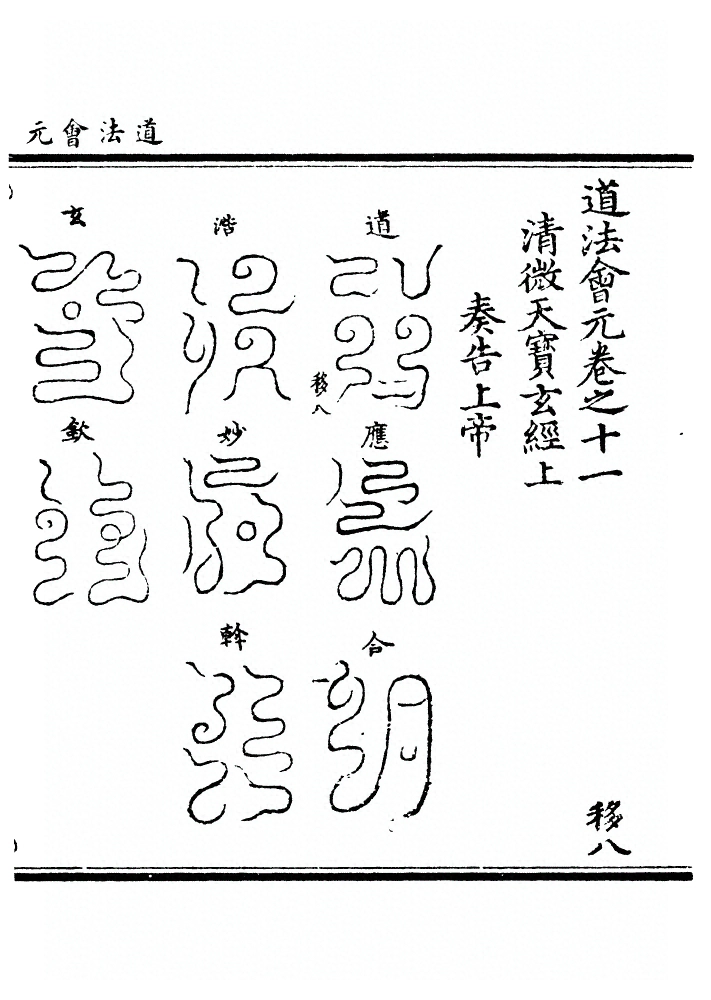 道法會元
道法會元卷之十一
移八
清微天寶玄經上
奏告上帝
道
應
合
移八
浩
妙
幹
玄
欽